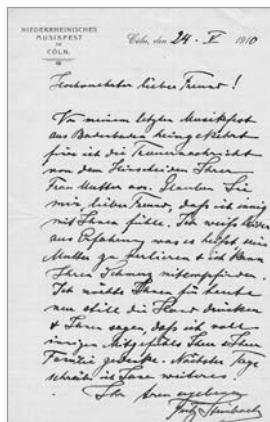 NIEDERRHEINISCHES
MUSIKFEST
IN
CÖLN.
Cöln, den 24. V 1910
Hochverehrter lieber Freund!
Von meinem letzten Musikfest
aus Badenbaden heimgekehrt
finde ich die Trauernachricht
von dem Hinscheiden Ihrer
Frau Mutter vor. Glauben Sie
mir, lieber Freund, daß ich innig
mit Ihnen fühle. Ich weiß leider
aus Erfahrung was es heißt eine
Mutter zu verlieren & ich kann
Ihren Schmerz mitempfinden.
Ich möchte Ihnen für heute
nur still die Hand drücken
& Ihnen sagen, daß ich voll
innigen Mitgefühls Ihrer & Ihrer
Familie gedenke. Nächster Tage
schreibe ich Ihnen weiteres!
Ihr treu ergebener
Fritz Steinbach